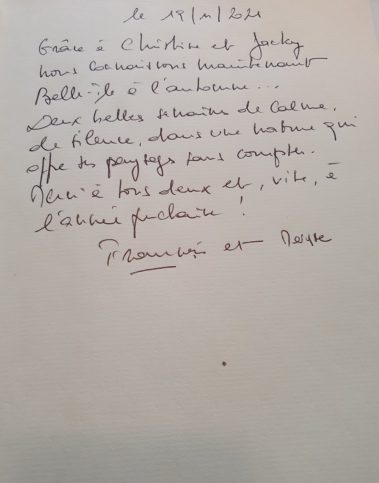 le 19/11/2021
Grâce à Christine et Jacky
nous connaissons maintenant
Belle-île à l'automne...
Deux belles semaines de calme,
de silence, dans une nature qui
offre ses paysages sans compter.
Merci à tous deux et, vite, à
l'année prochaine !
François et